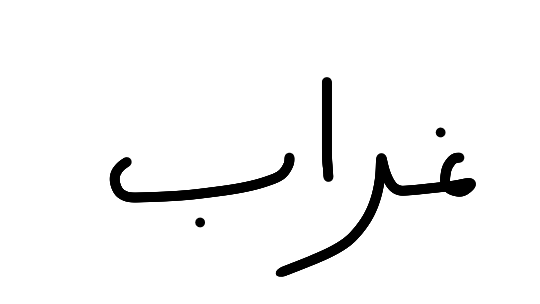 غراب